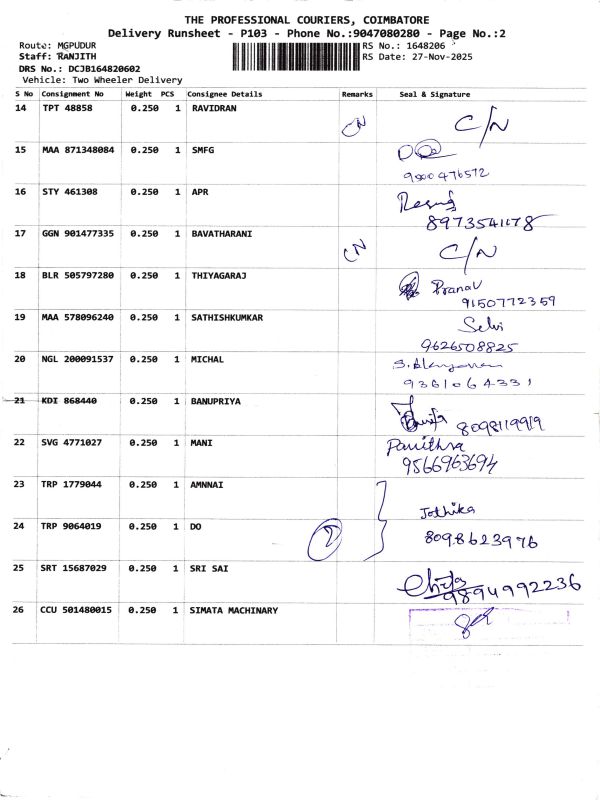 THE PROFESSIONAL COURIERS, COIMBATORE
Delivery Runsheet - P103 - Phone No.:9047080280 - Page No.:2
Route: MGPUDUR RS No.: 1648206
Staff: RANJITH RS Date: 27-Nov-2025
DRS No.: DCJB164820602
Vehicle: Two Wheeler Delivery
S No Consignment No Weight PCS Consignee Details Remarks Seal & Signature
14 TPT 48858 0.250 1 RAVIDRAN CN C/N
15 MAA 871348084 0.250 1 SMFG
9900476572
16 STY 461308 0.250 1 APR
8973541178
17 GGN 901477335 0.250 1 BAVATHARANI CN C/N
18 BLR 505797280 0.250 1 THIYAGARAJ Pranav
9150772359
19 MAA 578096240 0.250 1 SATHISHKUMKAR Selvi
9626508825
20 NGL 200091537 0.250 1 MICHAL
9361064331
21 KDI 868440 0.250 1 BANUPRIYA 8098119919
22 SVG 4771027 0.250 1 MANI Panithra
9566963694
23 TRP 1779044 0.250 1 AMNNAI Jothika
24 TRP 9064019 0.250 1 DO 2 8098623976
25 SRT 15687029 0.250 1 SRI SAI 9894992236
26 CCU 501480015 0.250 1 SIMATA MACHINARY